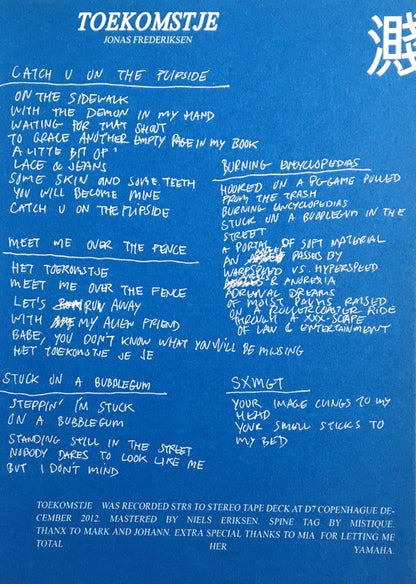 TOEKOMSTJE
JONAS FREDERIKSEN
CATCH U ON THE FLIPSIDE
ON THE SIDEWALK
WITH THE DEMON IN MY HAND
WAITING FOR THAT SHOUT
TO GRACE ANOTHER EMPTY PAGE IN MY BOOK
A LITTLE BIT OF
LACE & JEANS
SOME SKIN AND SOME TEETH
YOU WILL BECOME MINE
CATCH U ON THE FLIPSIDE
MEET ME OVER THE FENCE
HET TOEKOMSTJE
MEET ME OVER THE FENCE
LET'S RUN AWAY
WITH MY ALIEN FRIEND
BABE, YOU DON'T KNOW WHAT YOU'LL BE MISSING
HET TOEKOMSTJE JE JE
STUCK ON A BUBBLEGUM
STEPPIN' I'M STUCK
ON A BUBBLEGUM
STANDING STILL IN THE STREET
NOBODY DARES TO LOOK LIKE ME
BUT I DON'T MIND
BURNING ENCYCLOPEDIAS
HOOKED ON A PC-GAME PULLED
FROM THE TRASH
BURNING ENCYCLOPEDIAS
STUCK ON A BUBBLEGUM IN THE
STREET
A PORTAL OF SOFT MATERIAL
AN PASSES BY
WARPSPEED VS. HYPERSPEED
& ANOREXIA
ADRENAL DREAMS
OF MOIST PALMS RAISED
ON A ROLLERCOASTER RIDE
THROUGH A XXX-SCAPE
OF LAW & ENTERTAINMENT
SXMGT
YOUR IMAGE CLINGS TO MY
HEAD
YOUR SMELL STICKS TO
MY BED
TOEKOMSTJE WAS RECORDED STR8 TO STEREO TAPE DECK AT D7 COPENHAGUE DE-
CEMBER 2012. MASTERED BY NIELS ERIKSEN. SPINE TAG BY MISTIQUE.
THANX TO MARK AND JOHANN. EXTRA SPECIAL THANKS TO MIA FOR LETTING ME
TOTAL HER YAMAHA.